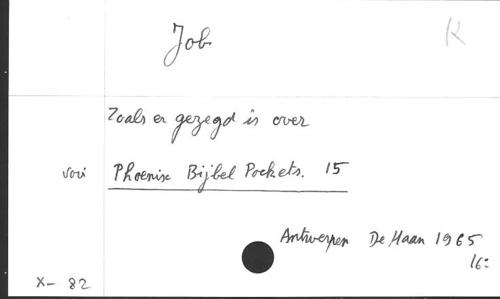 Job
K
Zoals er gezegd is over
voir Phoenix Bijbel Pockets. 15
Antwerpen De Haan 1965
16:
X- 82